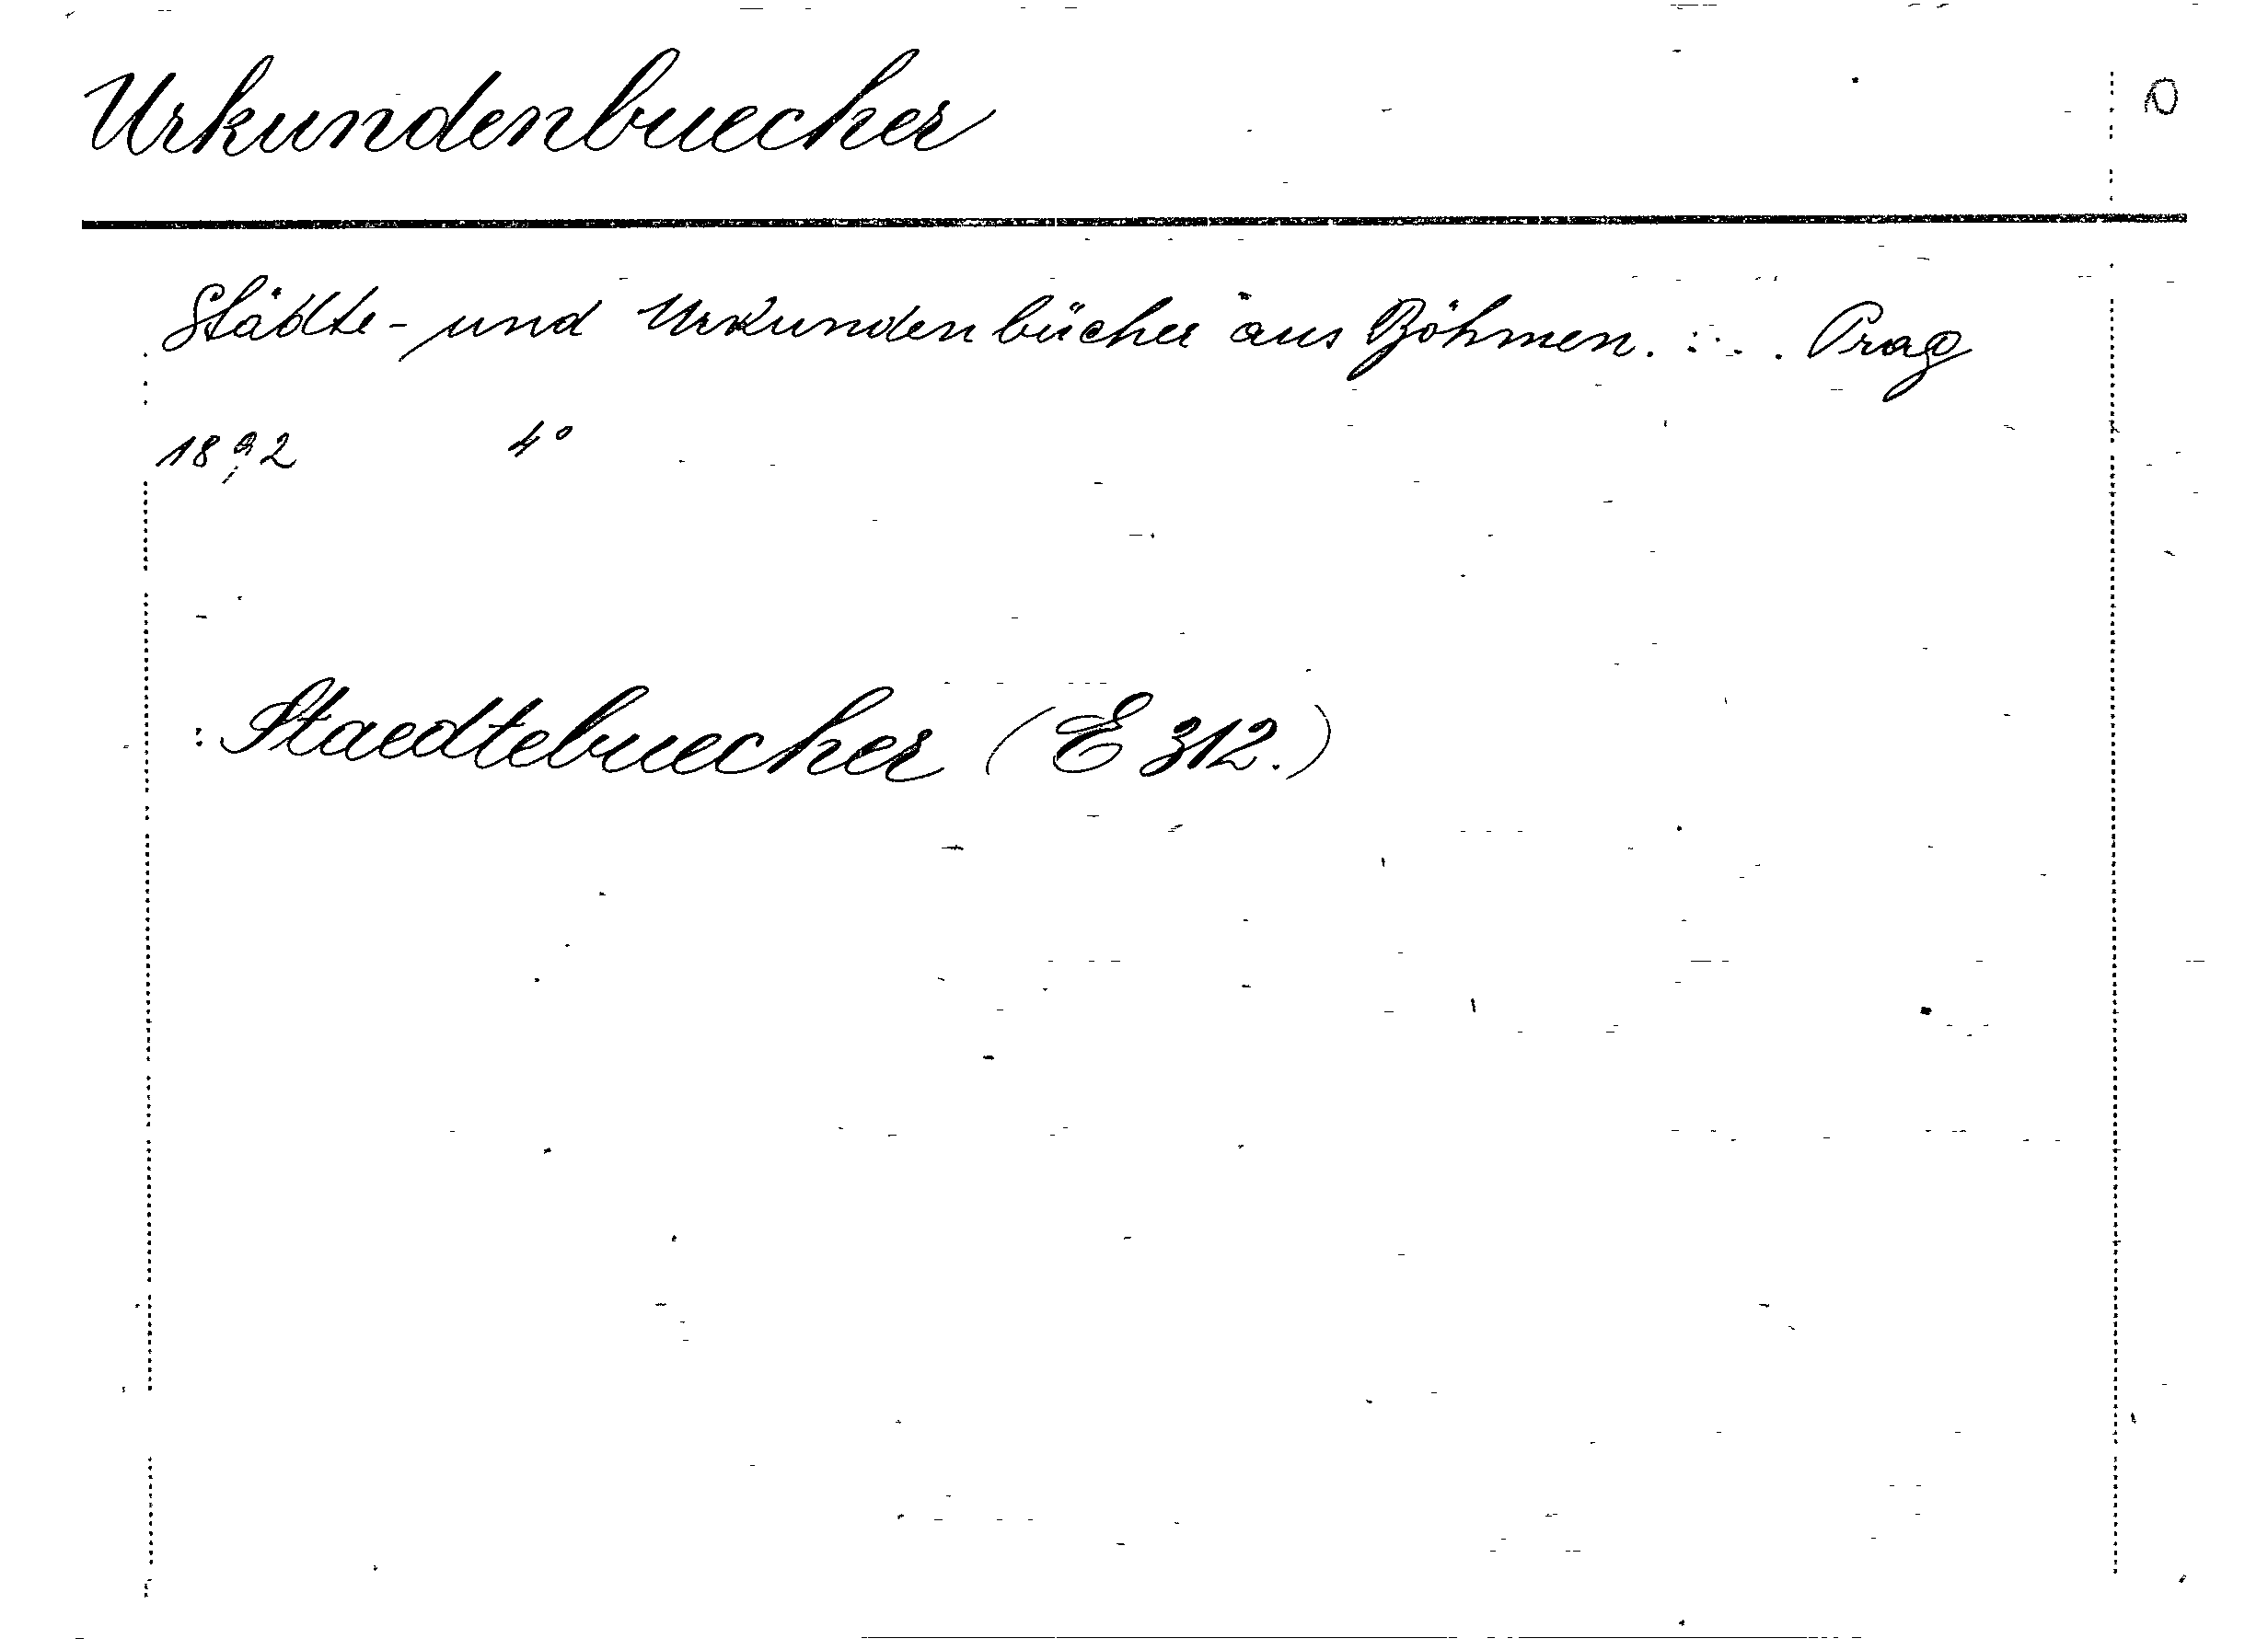 Urkundenbuecher
Städte- und Urkundenbücher aus Böhmen. ... Prag
1892 4°
: Staedtebuecher (E 312.)